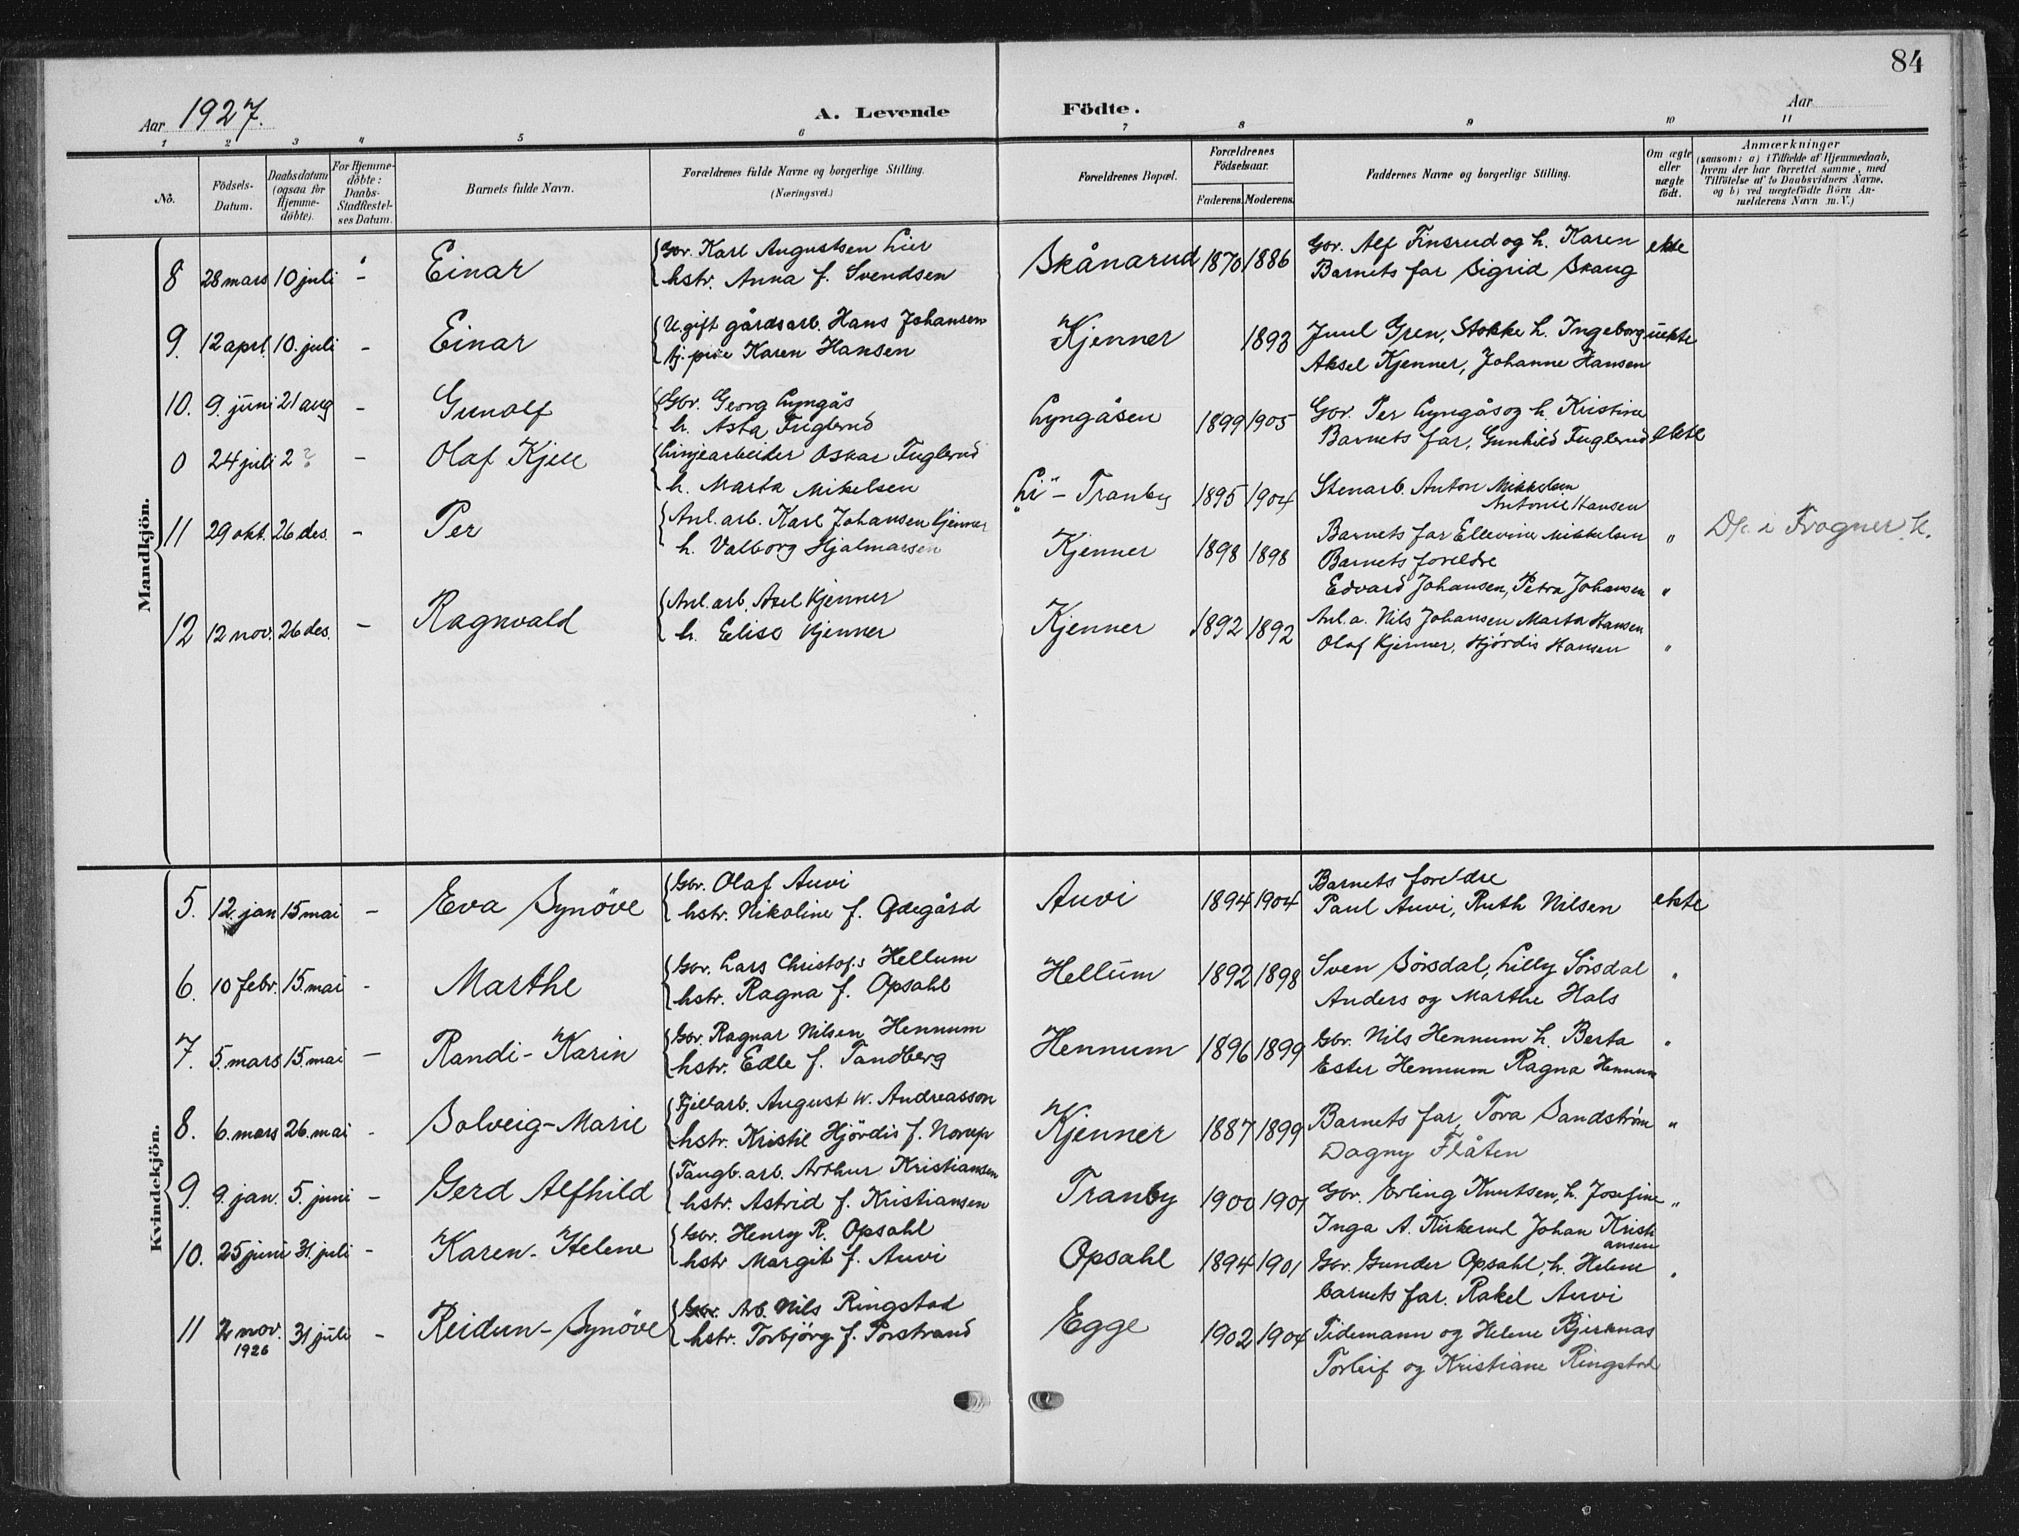 84
Aar 1927.
A. Levende Födte.
Aar
1 2 3 4 5 6 7 8 9 10 11
No.
Födsels-Datum.
Daabsdatum (ogsaa for Hjemme-döbte).
For Hjemme-döbte: Daabs-Stadfæstel-ses Datum.
Barnets fulde Navn.
Forældrenes fulde Navne og borgerlige Stilling. (Næringsvei.)
Forældrenes Bopæl.
Forældrenes Födselsaar.
Faderens. Moderens.
Faddernes Navne og borgerlige Stilling.
Om ægte eller uægte födt.
Anmærkninger
(saasom: a) i Tilfælde af Hjemmedaab, hvem der har forrettet samme, med Tilföielse af to Daabsvidners Navne, og b) ved uægtefödte Börn An-melderens Navn m. V.)
Mandkjön.
8 28 mars 10 juli - Einar Gbr. Karl Augustsen Lier Skånarud 1870 1886 Gbr. Alf Finsrud og h. Karen ekte
hstr. Anna f. Svendsen Barnets far Sigrid Skaug
9. 12 apr. 10. juli - Einar U.gift gårdsarb. Hans Johansen Kjenner 1893 Juul Gren, Stokke h. Ingeborg uekte
pike Karen Hansen Aksel Kjenner, Johanne Hansen
10. 9. juni 21 aug - Gunolf Gbr. Georg Lyngås Lyngåsen 1899 1905 Gbr. Per Lyngås og h. Kristine
h. Asta Fuglerud Barnets far, Gunhild Fuglerud ekte
0 24 juli 2 ? - Olaf Kjell Linjearbeider Oskar Fuglerud "Li" - Tranby 1895 1904 Stenarb. Anton Mikkelsen
h. Marta Mikelsen Antonie Hansen
Barnets far Ellevine Mikkelsen "
11 29 okt. 26 des. - Per Anl. arb. Karl Johansen Kjenner Kjenner 1898 1898 Barnets foreldre
h. Valborg Hjalmarsen Edvard Johansen, Petra Johansen " i Frogner k.
12 12 nov. 26 des. - Ragnvald Anl. arb. Axel Kjenner Kjenner 1892 1892 Anl. a. Nils Johansen Marta Hansen
h. Elise Kjenner Olaf Kjenner, Hjørdis Hansen "
Kvindekjön.
5. 12. jan 15 mai - Eva Synöve Gbr. Olaf Auvi Auvi 1894 1904 Barnets foreldre
hstr. Nikoline f. Ødegård Paul Auvi, Ruth Nilsen ekte
6. 10 febr. 15 mai - Marthe Gbr. Lars Christofs Hellum Hellum 1892 1898 Sven Sörsdal, Lilly Sörsdal "
hstr. Ragna f. Opsahl Anders og Marthe Hals
7. 5. mars 15. mai - Randi-Karin Gbr. Ragnar Nilsen Hennum Hennum 1896 1899 Gbr. Nils Hennum h. Berta "
hstr. Edle f. Tandberg Ester Hennum Ragna Hennum
8. 6. mars 26. mai - Solveig-Marie Fjellarb. August W. Andreasson Kjenner 1887 1899 Barnets far, Tora Sandström "
hstr. Kristie Hjördis f. Norup Dagny Flåten
9. 9. jan. 5. juni - Gerd Alfhild Taugb. arb. Arthur Kristiansen Tranby 1900 1901 Gbr. Erling Knutsen, h. Josefine "
hstr. Astrid f. Kristiansen Inga A. Kirkerud Johan Kristiansen
10. 25 juni 31. juli - Karen-Helene Gbr. Henry R. Opsahl Opsahl 1894 1901 Gbr. Gunder Opsahl, h. Helene "
hstr Margit f. Auvi barnets far. Rakel Auvi
11 2 nov. 1926 31 juli - Reidun-Synöve Gbr. Arb. Nils Ringstad Egge 1902 1904 Tidemann og Helene Bjerknas
hstr. Torbjörg f. Porstrand Torleif og Kristiane Ringstad